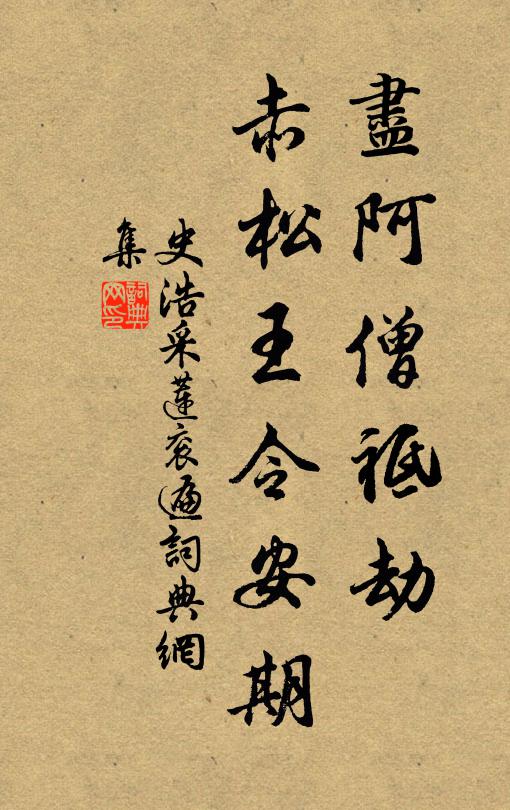 盡阿僧祗劫
赤松王令安期
史浩采蓮衮遍詞典網
集
詞典
网印